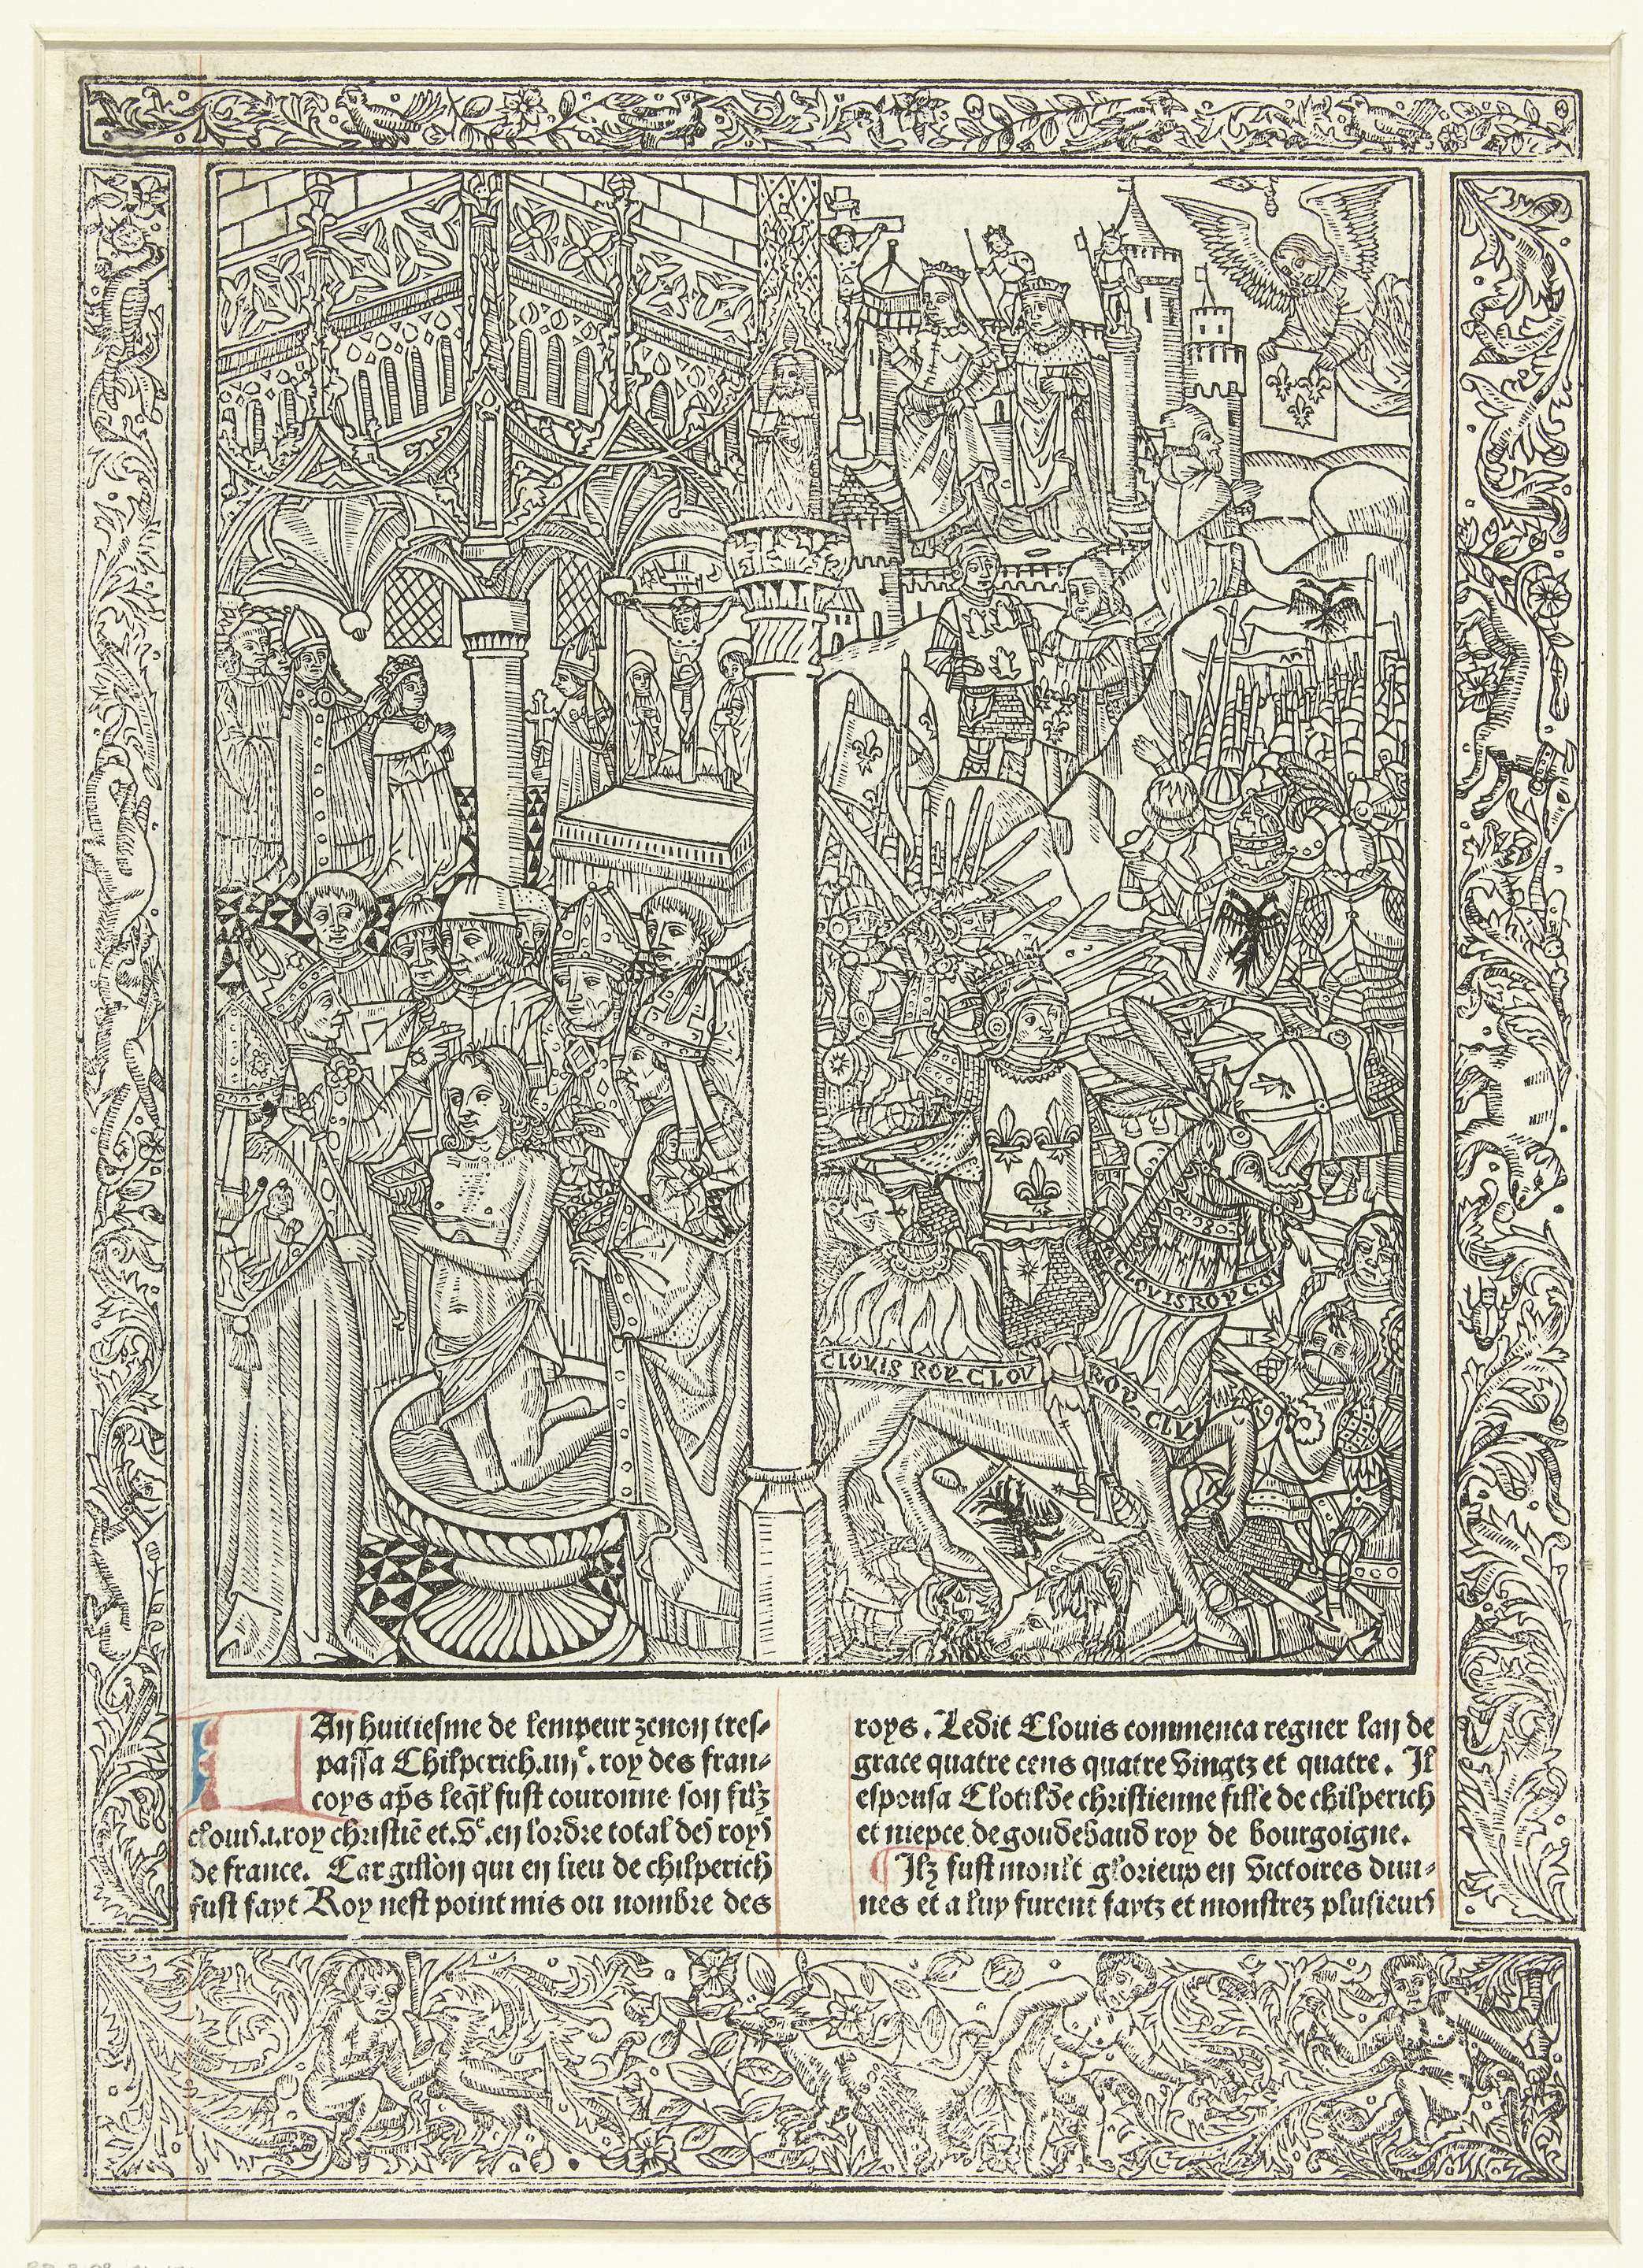 CLOVIS ROY CO
CLOVIS ROY CLOV
ROY CLV
An huitiesme de lempeur zenon tres-
passa Chilperich .iiij^e. roy des fran-
coys ap̃s leq̃l fust couronne son filz
clouis .i. roy christiẽ et .v^e. en lordre total des roys
de france. Car gillon qui en lieu de chilperich
fust fayt Roy nest point mis ou nombre des
roys. Ledit Clouis commenca regner lan de
grace quatre cens quatre vingtz et quatre. Il
espousa Clotilde christienne fille de chilperich
et niepce de goudebaud roy de bourgoigne.
¶ Ilz fust moult glorieux en victoires diui-
nes et a luy furent faytz et monstrez plusieurs